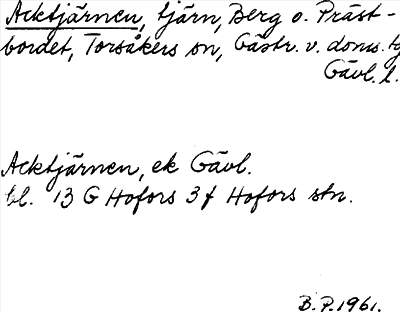 Acktjärnen, tjärn, Berg o. Präst-
bordet, Torsåkers sn, Gästr. v. doms. tg
Gävl. l.
Acktjärnen, ek Gävl.
bl. 13 G Hofors 3 f Hofors stn.
B.P. 1961.